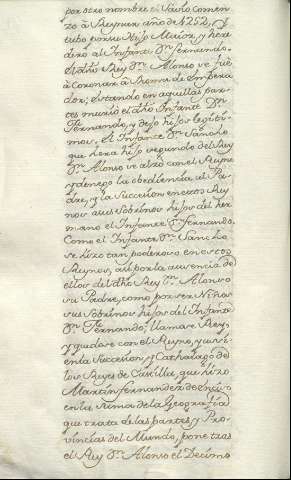 por otro nombre el Savio comen
zò à Reynar año de 1252, y
tubo por su Hijo Maior, y here
dero al Infante Dn. Fernando.
El dho Rey Dn. Alonso se fuè
à coronar à Roma de Empera
dor, estando en aquellas par
tes murió el dho Infante Dn.
Fernando, y dejò hijos legiti
mos. El Infante Dn. Sancho
que hera hijo segundo del Rey
Dn. Alonso se alzò con el Reyno
y denegò la obediencia al Pa
dre, y la Succesion en estos Rey
nos a sus Sobrinos hijos del her
mano el Infante Dn. Fernando.
Como el Infante Dn. Sancho
se hizo tan poderoso en estos
Reynos, asi por la ausencia de
ellos del dho Rey Dn. Alonso
su Padre, como por ser Niños
sus Sobrinos hijos del Infante
Dn. Fernando, llamase Rey,
y quedose con el Reyno, y assi
en la Succesion, y Cathalogo de
los Reyes de Castilla, que hizo
Martin fernandez de Enciso
en la Suma de la Geografia
que trata de las partes, y Pro
vincias del Mundo, pone tras
el Rey Dn. Alonso el Decimo